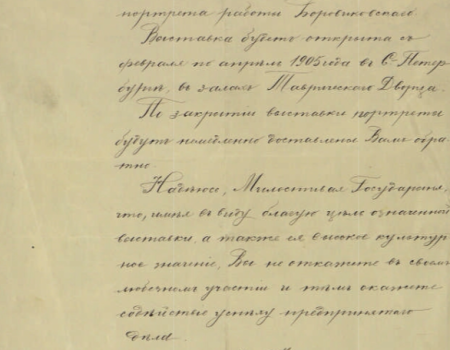 портрета работы Боровиковскаго.
Выставка будетъ открыта съ
февраля по апрѣль 1905 года въ С.-Петер-
бургѣ, въ залахъ Таврическаго Дворца.
По закрытіи выставки портреты
будутъ немедленно доставлены Вамъ обра-
тно.
Надѣюсь, Милостивая Государыня,
что, имѣя въ виду благую цѣль означенной
выставки, а также ея высокое культур-
ное значеніе, Вы не откажете въ своемъ
любезномъ участіи и тѣмъ окажете
содѣйствіе успѣху предпринятаго
дѣла.